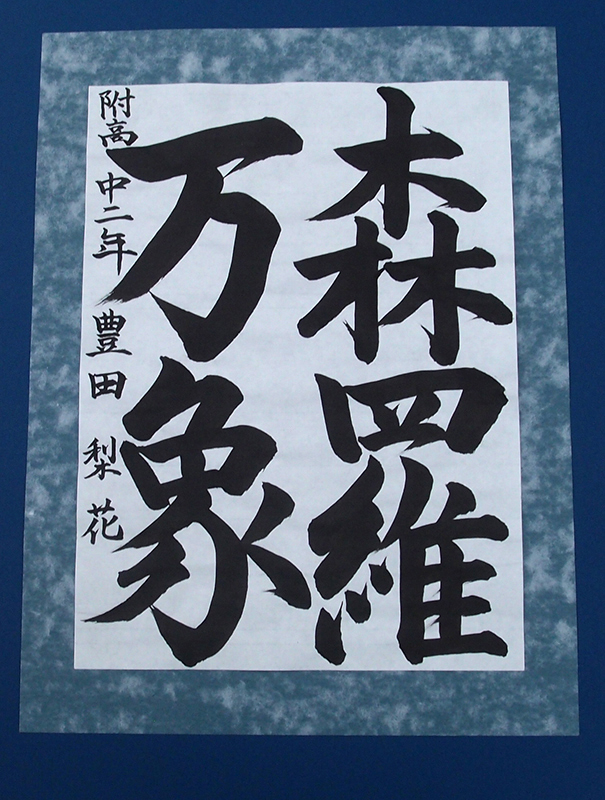 森羅
万象
附高 中二年 豊田 梨花